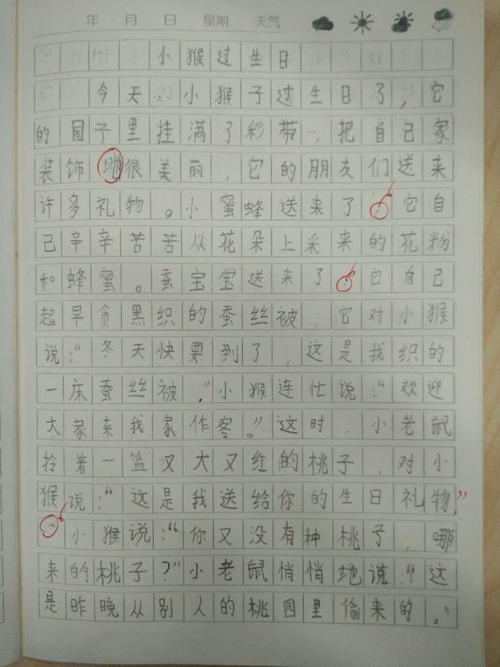 年 月 日 星期 天气
小猴过生日
今天,小猴子过生日了,它
的园子里挂满了彩带,把自己家
装饰地很美丽,它的朋友们送来
许多礼物。小蜜蜂送来了 它自
己辛辛苦苦从花朵上采来的花粉
和蜂蜜。蚕宝宝送来了 它自己
起早贪黑织的蚕丝被,它对小猴
说:“冬天快要到了,这是我织的
一床蚕丝被。”小猴连忙说:“欢迎
大家来我家作客。”这时,小老鼠
拎着一篮又大又红的桃子,对小
猴说:“这是我送给你的生日礼物”
小猴说:“你又没有种桃子,哪
来的桃子?”小老鼠悄悄地说:“这
是昨晚从别人的桃园里偷来的。”